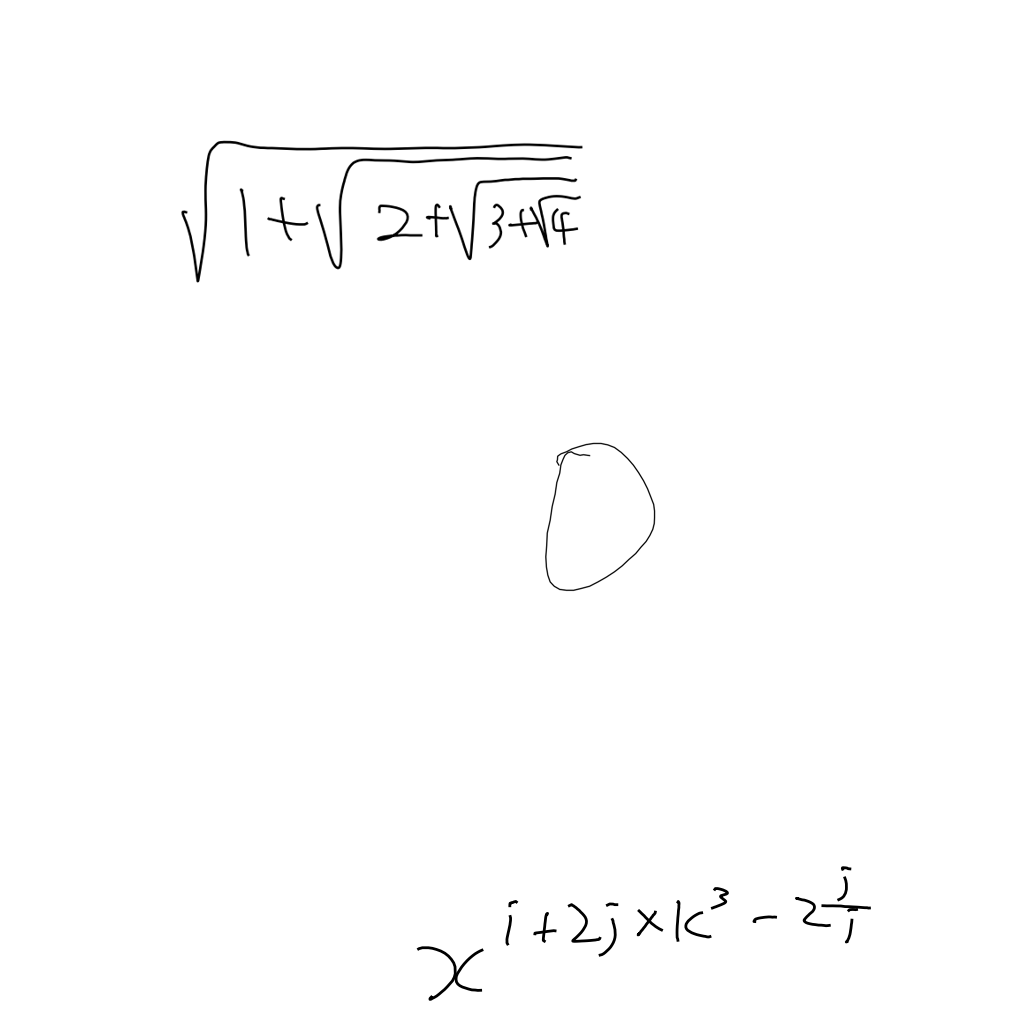 √(1+√(2+√(3+√4)))
x^(i+2j×k³-2^(j/j))